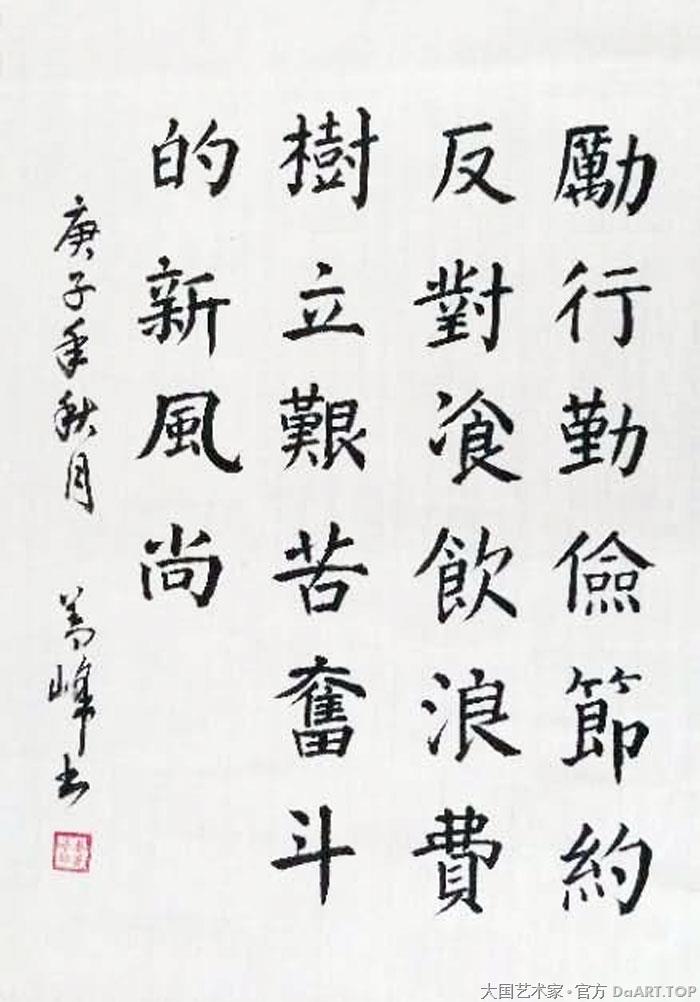 勵行勤儉節約
反對飡飲浪費
樹立艱苦奮斗
的新風尚
庚子年秋月 峰书
大国艺术家·官方 DaART.TOP